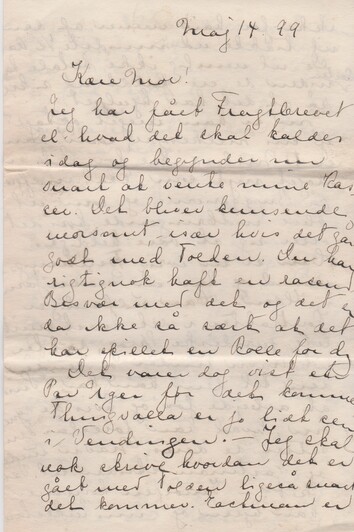 Maj 14. 99
Kære Mor!
Jeg har fået Fragtbrevet
el. hvad det skal kaldes
idag og begynder nu
snart at vente mine Kas-
ser. Det bliver
morsomt, især hvis det går
godt med Tolden. Du har
rigtignok haft en rasend
Besvær med det og det e
da ikke så sært at det
har spillet en Rolle for dig
Det varer dog vist et
Par Uger før det komme
Thingvalla er jo lidt sen
i Vendingen. — Jeg skal
nok skrive hvordan det er
gået med Tolden ligeså snart
det kommer. Eastman er